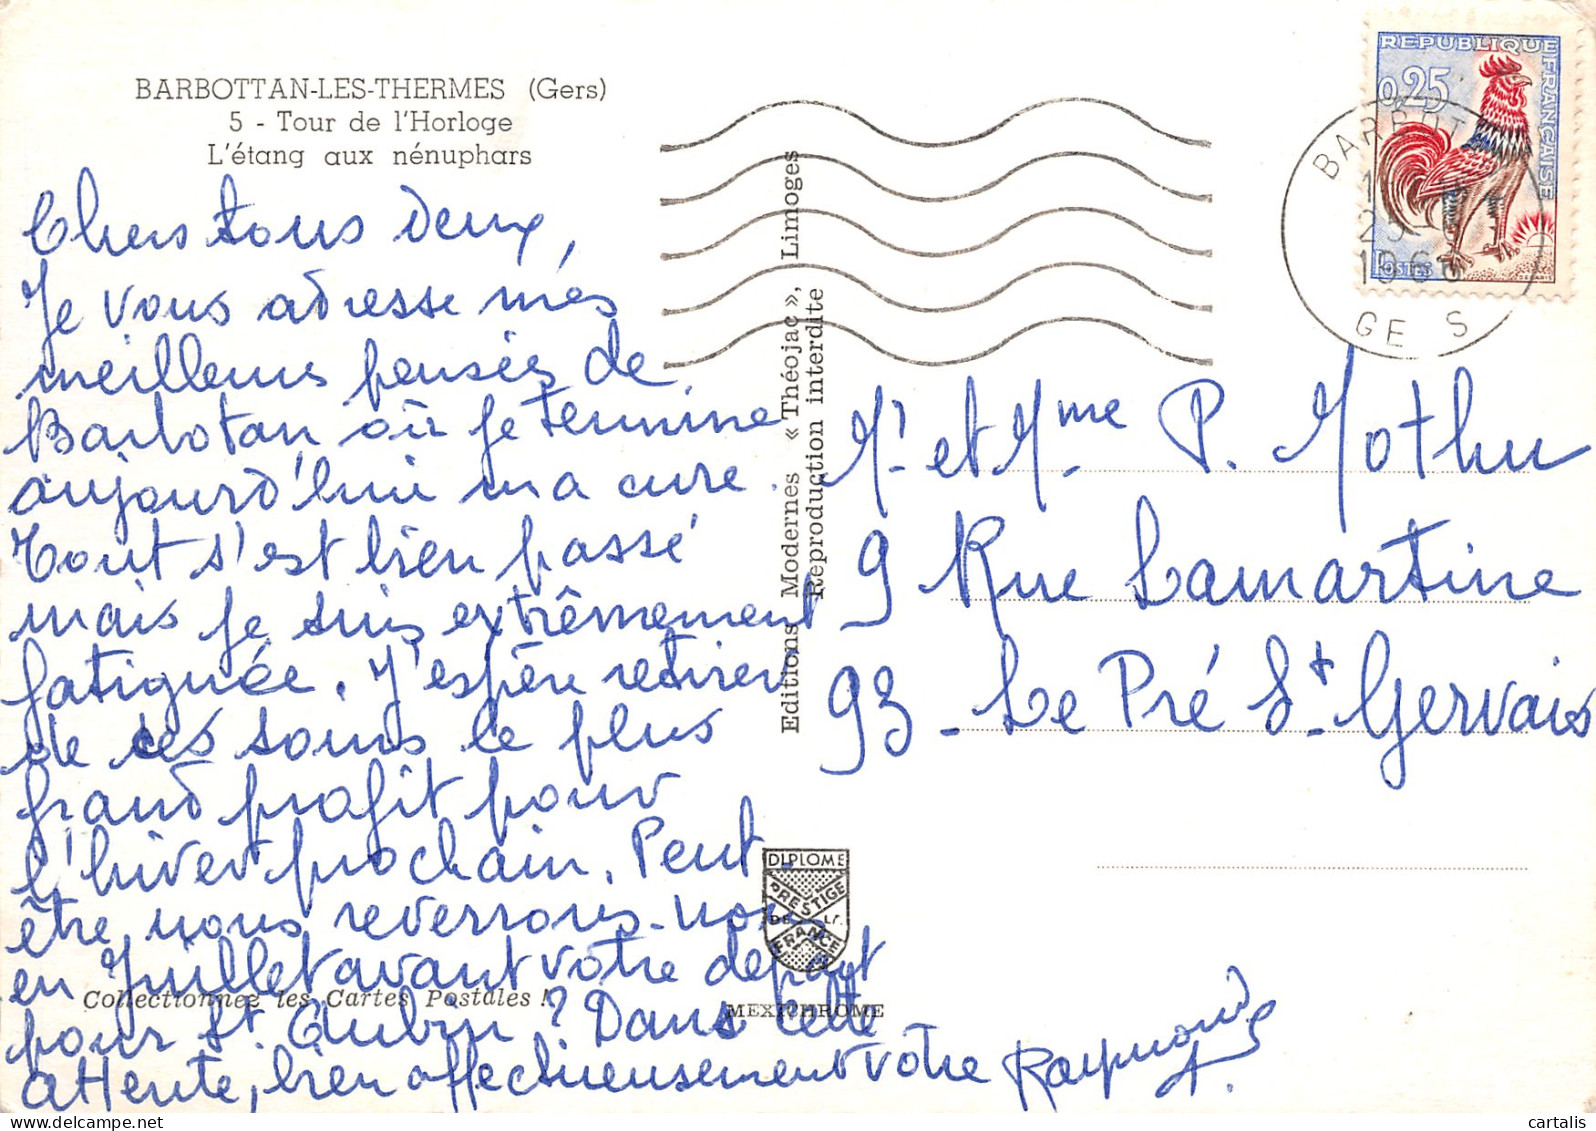 BARBOTTAN-LES-THERMES (Gers)
5 - Tour de l'Horloge
L'étang aux nénuphars
Chers tous deux,
Je vous adresse mes
meilleures pensées de
Barbotan où je termine
aujourd'hui ma cure.
Tout s'est bien passé
mais je suis extrêmement
fatiguée. J'espère retirer
de ces soins le plus
grand profit pour
l'hiver prochain. Peut
être nous reverrons-nous
en Juillet avant votre départ
pour St. Aubin ? Dans cette
attente, bien affectueusement votre Raymonde
Collectionnez les Cartes Postales !
Editions Modernes « Théojac », Limoges
Reproduction interdite
DIPLOME
PRESTIGE
DE LA
FRANCE
MEXICHROME
REPUBLIQUE FRANÇAISE
0,25
POSTES
BARBOT
25
196
GE S
Mr. et Mme P. Mothu
9 Rue Lamartine
93 - Le Pré St. Gervais
cartalis
delcampe.net